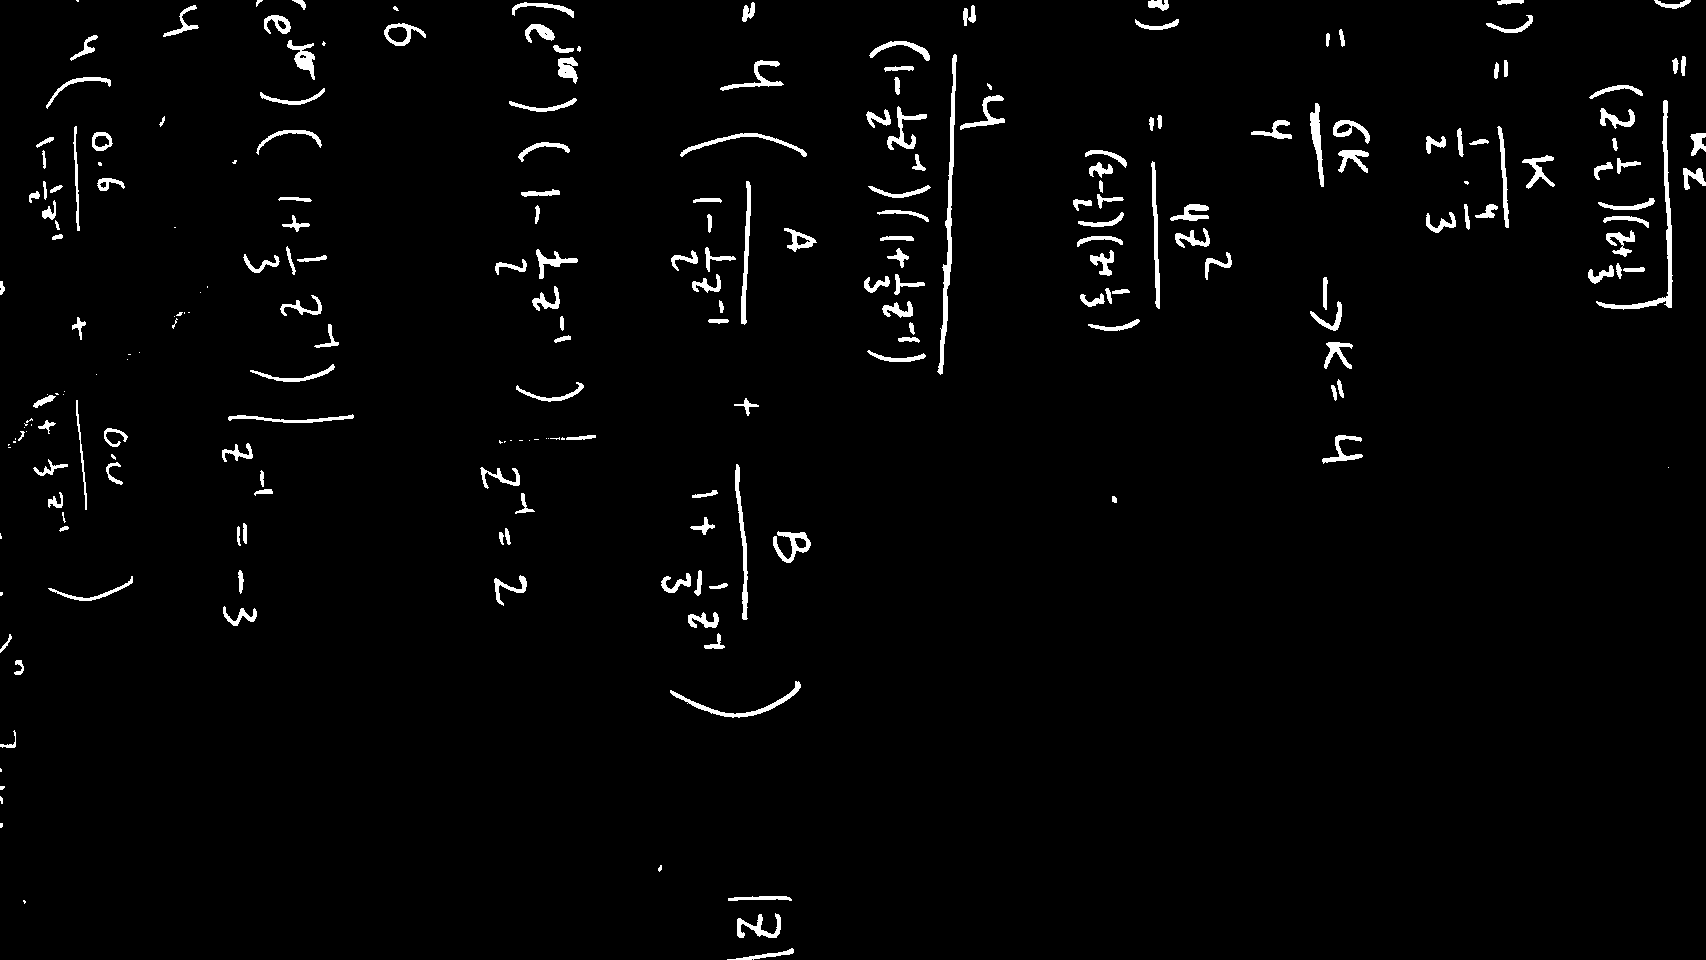 ) = KZ / (Z - 1/2)(Z + 1/3)
1) = K / (1/2 · 4/3)
= 6K / 4 → K = 4
z) = 4Z^2 / (Z - 1/2)(Z + 1/3)
= 4 / (1 - 1/2 Z^-1)(1 + 1/3 Z^-1)
= 4 ( A / (1 - 1/2 Z^-1) + B / (1 + 1/3 Z^-1) ) |Z|
(e^jω) (1 - 1/2 Z^-1) | Z^-1 = 2
.6
(e^jω) (1 + 1/3 Z^-1) | Z^-1 = -3
4
4 ( 0.6 / (1 - 1/2 Z^-1) + 0.4 / (1 + 1/3 Z^-1) )